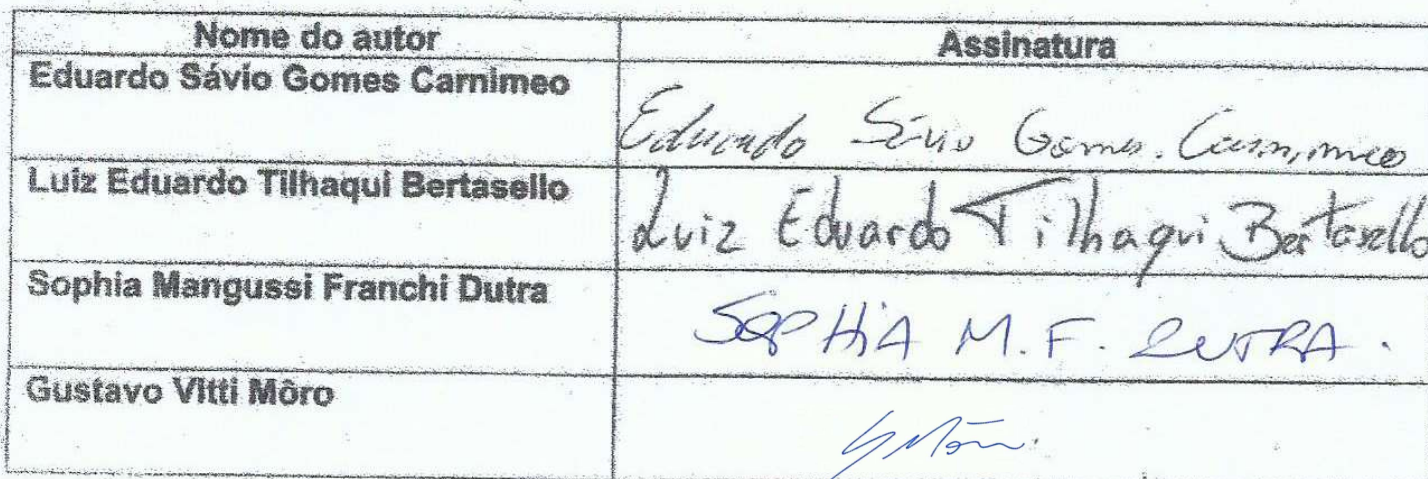 Nome do autor Assinatura
Eduardo Sávio Gomes Carnimeo
Eduardo Sávio Gomes Carnimeo
Luiz Eduardo Tilhaqui Bertasello
Luiz Eduardo Tilhaqui Bertasello
Sophia Mangussi Franchi Dutra
SOPHiA M. F. DUTRA.
Gustavo Vitti Môro